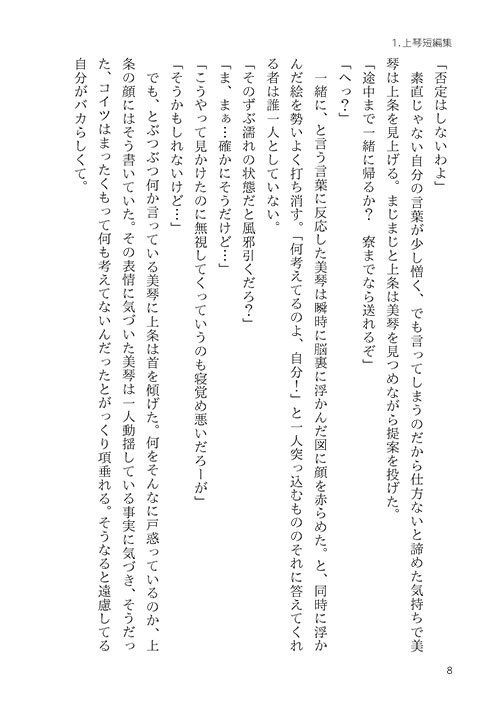 1. 上琴短編集
「否定はしないわよ」
　素直じゃない自分の言葉が少し憎く、でも言ってしまうのだから仕方ないと諦めた気持ちで美
琴は上条を見上げる。まじまじと上条は美琴を見つめながら提案を投げた。
「途中まで一緒に帰るか？　寮までなら送れるぞ」
「へっ？」
　一緒に、と言う言葉に反応した美琴は瞬時に脳裏に浮かんだ図に顔を赤らめた。と、同時に浮か
んだ絵を勢いよく打ち消す。「何考えてるのよ、自分！」と一人突っ込むもののそれに答えてくれ
る者は誰一人としていない。
「そのずぶ濡れの状態だと風邪引くだろ？」
「ま、まぁ…確かにそうだけど…」
「こうやって見かけたのに無視してくっていうのも寝覚め悪いだろーが」
「そうかもしれないけど…」
　でも、とぶつぶつ何か言っている美琴に上条は首を傾げた。何をそんなに戸惑っているのか、上
条の顔にはそう書いていた。その表情に気づいた美琴は一人動揺している事実に気づき、そうだっ
た、コイツはまったくもって何も考えてないんだったとがっくり項垂れる。そうなると遠慮してる
自分がバカらしくて。
8